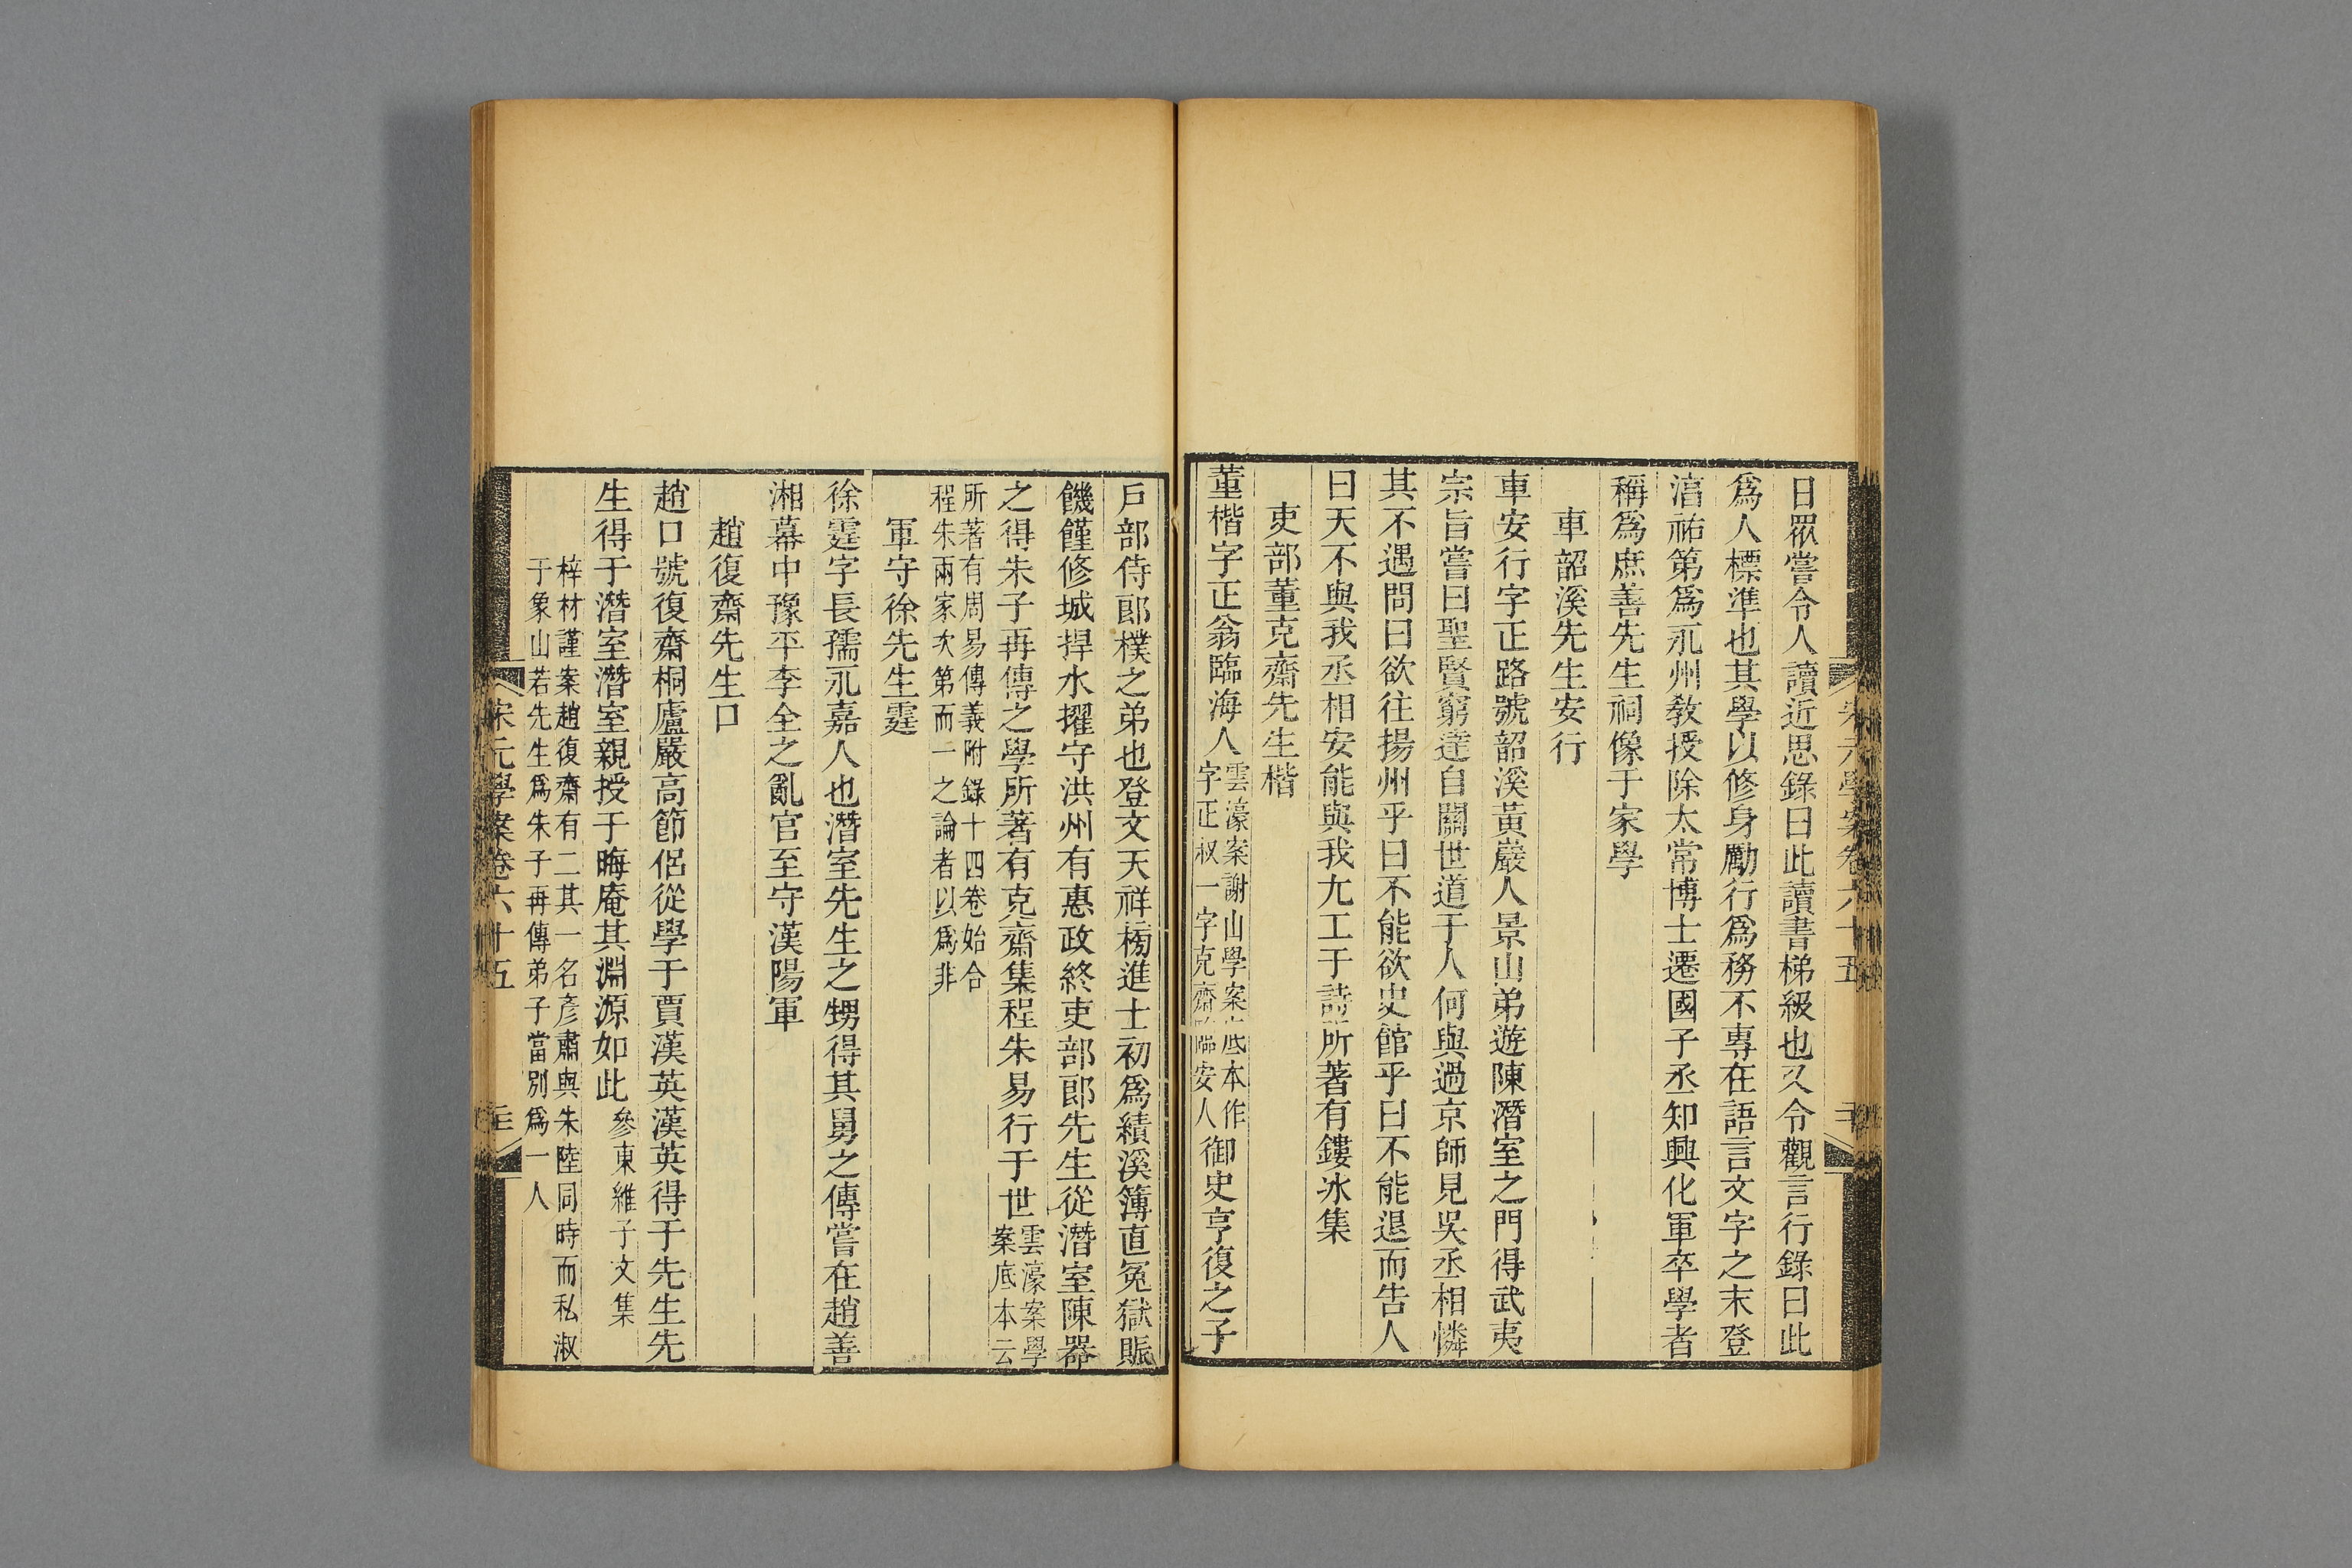 日眾嘗令人讀近思錄曰此讀書梯級也又令觀言行錄曰此
爲人標準也其學以修身勵行爲務不專在語言文字之末登
湻祐第爲永州敎授除太常博士遷國子丞知興化軍卒學者
稱爲庶善先生祠像于家學
車韶溪先生安行
車安行字正路號韶溪黃巖人景山弟遊陳潛室之門得武夷
宗旨嘗曰聖賢窮達自關世道于人何與過京師見吳丞相憐
其不遇問曰欲往揚州乎曰不能欲史館乎曰不能退而告人
曰天不與我丞相安能與我尢工于詩所著有鏤冰集
吏部董克齋先生楷
董楷字正翁臨海人雲濠案謝山學案底本作字正叔一字克齋臨安人御史亨復之子
戶部侍郎樸之弟也登文天祥榜進士初爲績溪簿直冤獄賑
饑饉修城捍水擢守洪州有惠政終吏部郎先生從潛室陳器
之得朱子再傳之學所著有克齋集程朱易行于世雲濠案學案底本云
所著有周易傳義附錄十四卷始合
程朱兩家次第而一之論者以爲非
軍守徐先生霆
徐霆字長孺永嘉人也潛室先生之甥得其舅之傳嘗在趙善
湘幕中豫平李全之亂官至守漢陽軍
趙復齋先生口
趙口號復齋桐廬嚴高節侶從學于賈漢英漢英得于先生先
生得于潛室潛室親授于晦庵其淵源如此參東維子文集
梓材謹案趙復齋有二其一名彥肅與朱陸同時而私淑
于象山若先生爲朱子再傳弟子當別爲一人
宋元學案卷六十五